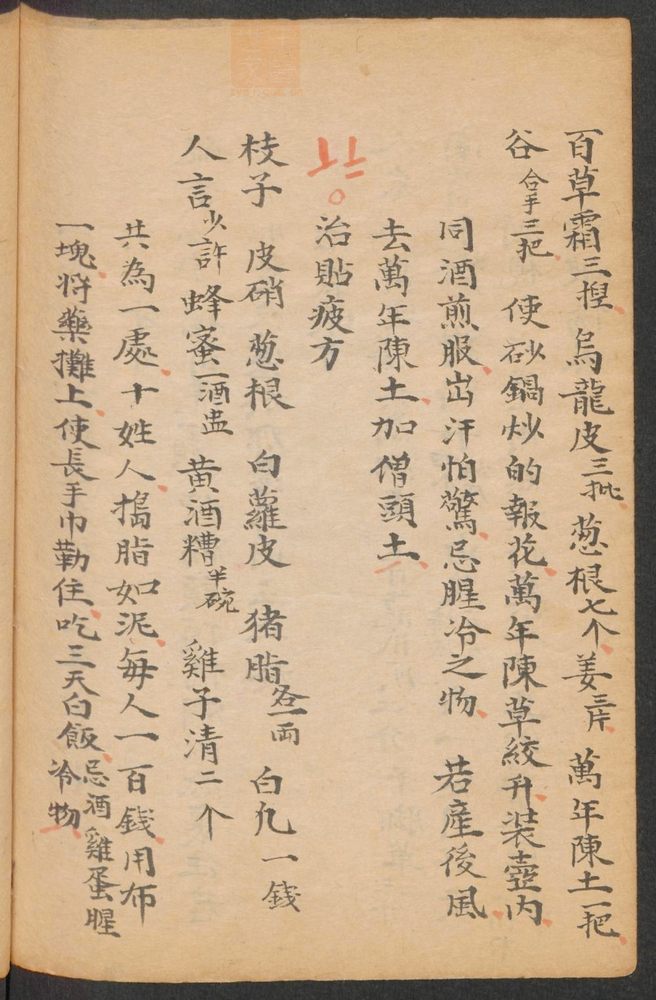 百草霜三捏烏龍皮三批葱根七个姜三片萬年陳土一把
谷合手三把使砂鍋炒的報花萬年陳草絞升装壺内
同酒煎服出汗怕驚忌腥冷之物若産後風
去萬年陳土加僧頭土
治貼疲方
枝子皮硝葱根白蘿皮猪脂各一両白凢一錢
人言少許蜂蜜一酒盅黄酒糟半碗雞子清二个
共為一處十姓人搗脂如泥每人一百錢用布
一塊将藥攤上使長手巾勒住吃三天白飯忌酒雞蛋腥冷物